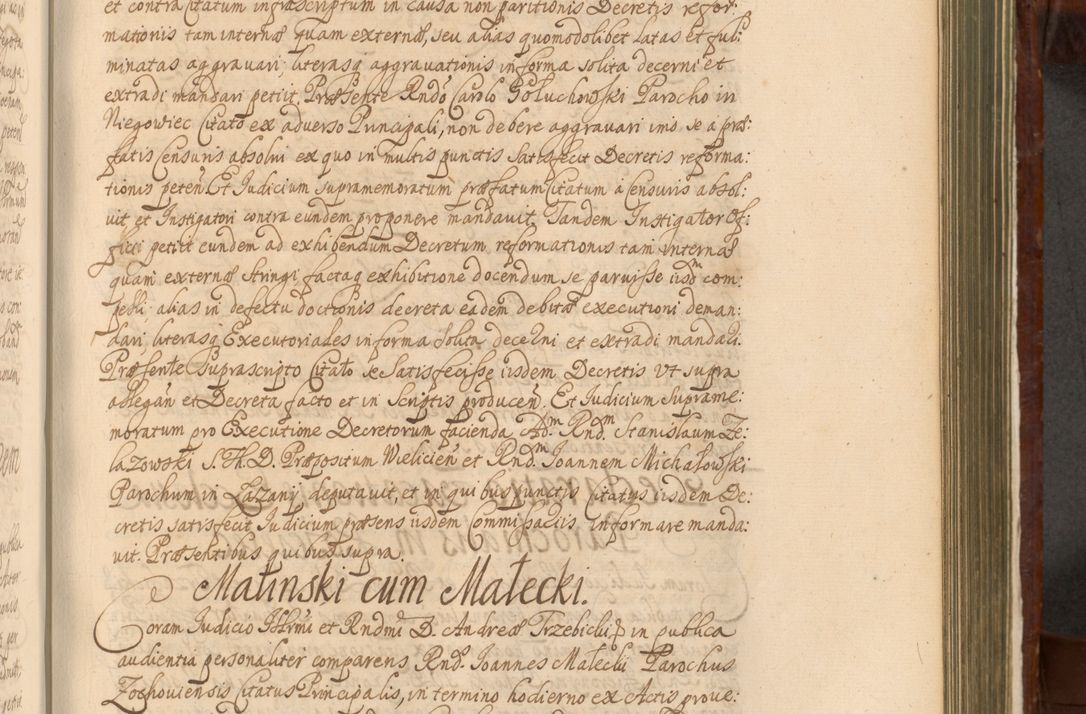 et contra Citatum infrascriptum in causa non paritionis Decretis refor:
mationis tam internæ quam externæ, seu alias quomodolibet latas et ful:
minatas aggravari, literasq aggravationis in forma solita decerni et
extradi mandari petiit. Præsente Rndo Carolo Gołuchowski Parocho in
Niegowiec Citato ex adverso Principali, non debere aggravari imo se a præ:
fatis Censuris absolvi ex quo in multis punctis satisfecit Decretis reforma:
tionis peten. Et Judicium supramemoratum præfatum Citatum a Censuris absol:
vit et Instigatori contra eundem proponere mandavit. Tandem Instigator Of:
ficii petiit eundem ad exhibendum Decretum reformationis tam internæ
quam externæ stringi, factaq exhibitione docendum se paruisse iisdm com:
pelli alias in defectu doctionis decreta eadem debitæ executioni deman:
dari literasq Executoriales in forma solita decerni et extradi mandari.
Præsente suprascripto Citato se satisfecisse iisdem Decretis ut supra
allegan et Decreta facto et in scriptis producen. Et Judicium supramē:
moratum pro Executione Decretorum facienda Adm Rndm Stanislaum Ze:
lazowski S. Th. D. Præpositum Vielicien et Rndm Joannem Michałowski
Parochum in Łazany deputavit, et in quibus punctis Citatus iisdem De:
cretis satisfecit Judicium præsens iisdem Commissariis informare manda:
vit. Præsentibus quibus supra.
Maliński cum Małecki.
Coram Judicio Illrmi et Rndmi D. Andreæ Trzebicki in publica
audientia personaliter comparens Rnd. Joannes Małecki Parochus
Zochoviensis Citatus Principalis, in termino hodierno ex Actis prove: